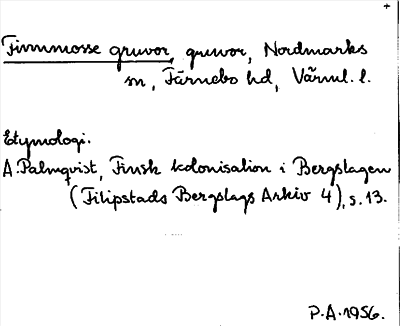 Finnmosse gruvor, gruvor, Nordmarks
sn, Färnebo hd, Värml. l.
Etymologi.
A. Palmqvist, Finsk kolonisation i Bergslagen
(Filipstads Bergslags Arkiv 4), s. 13.
P.A. 1956.